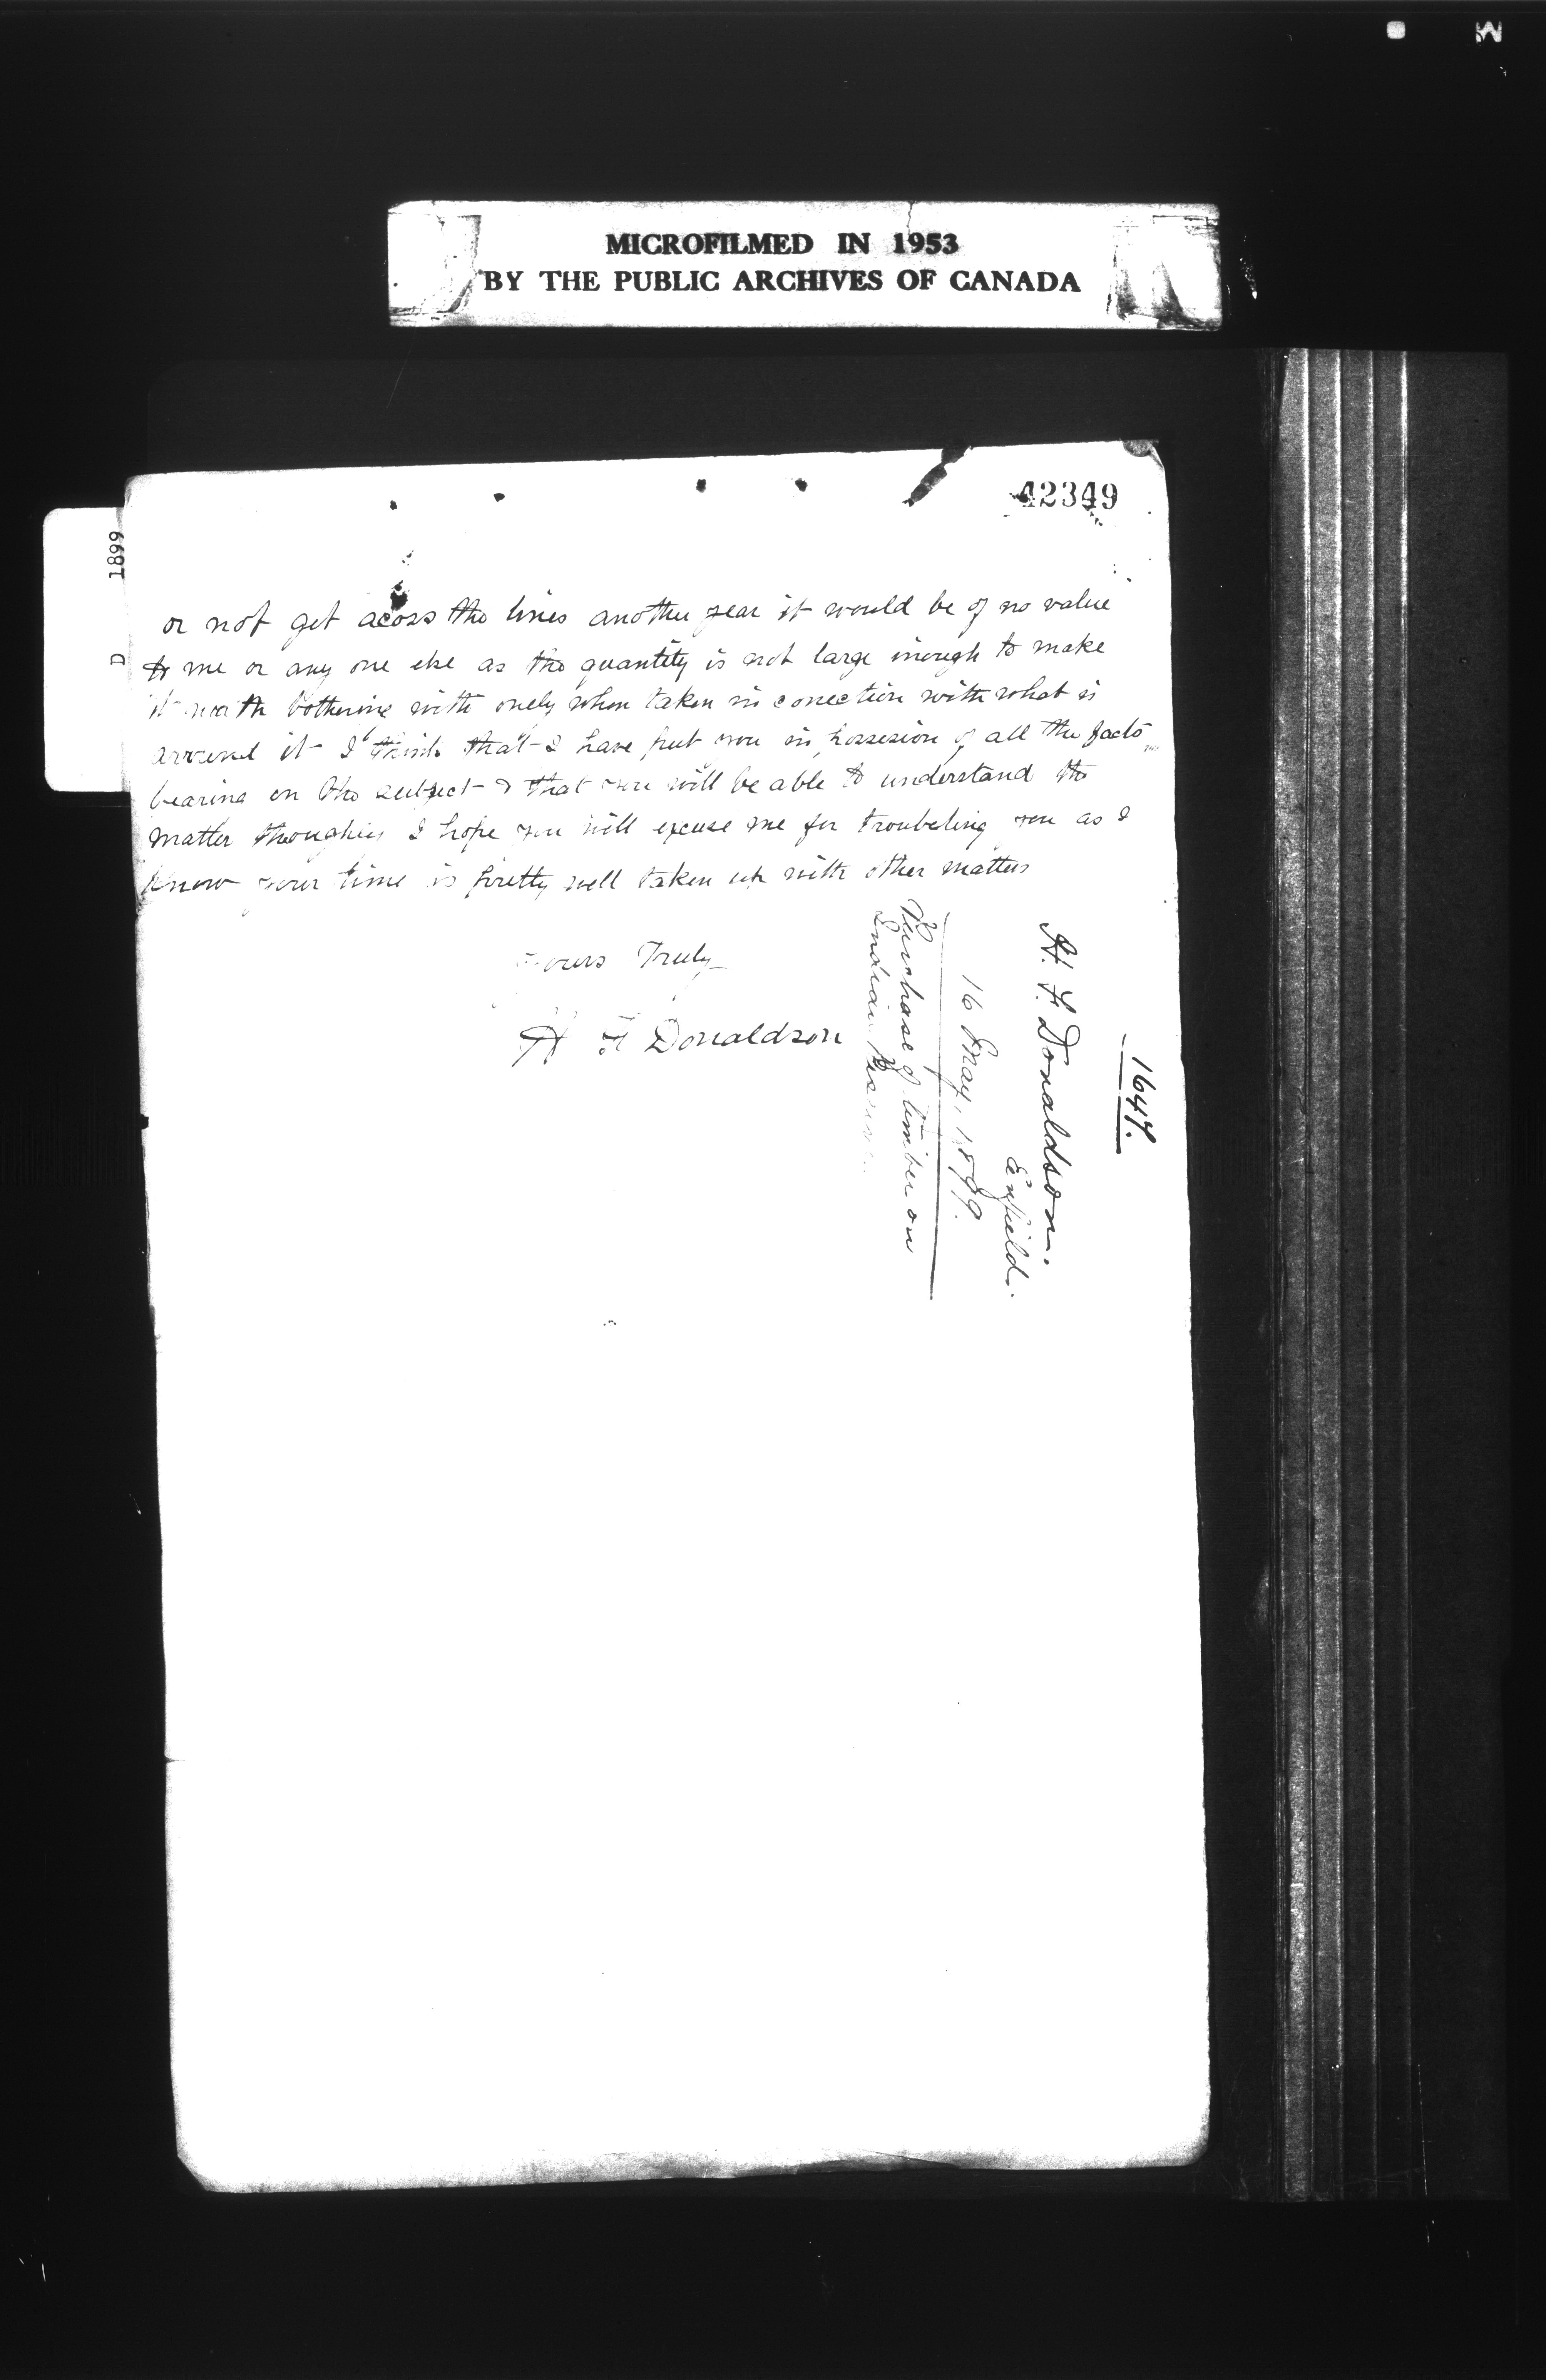 MICROFILMED IN 1953
BY THE PUBLIC ARCHIVES OF CANADA
42349
1899
D
or not get acoss the lines another year it would be of no value
to me or any one else as the quantity is not large inough to make
it worth bothering with onely when taken in conection with what is
arround it I think that I have put you in possesion of all the facts
bearing on the subject & that you will be able to understand the
matter I hope you will excuse me for troubeling you as I
know your time is pretty well taken up with other matters
Yours Truly
H F Donaldson
1647.
H. F. Donaldson.
Enfield.
16 May, 1899.
Purchase of timber on
Indian Reserve